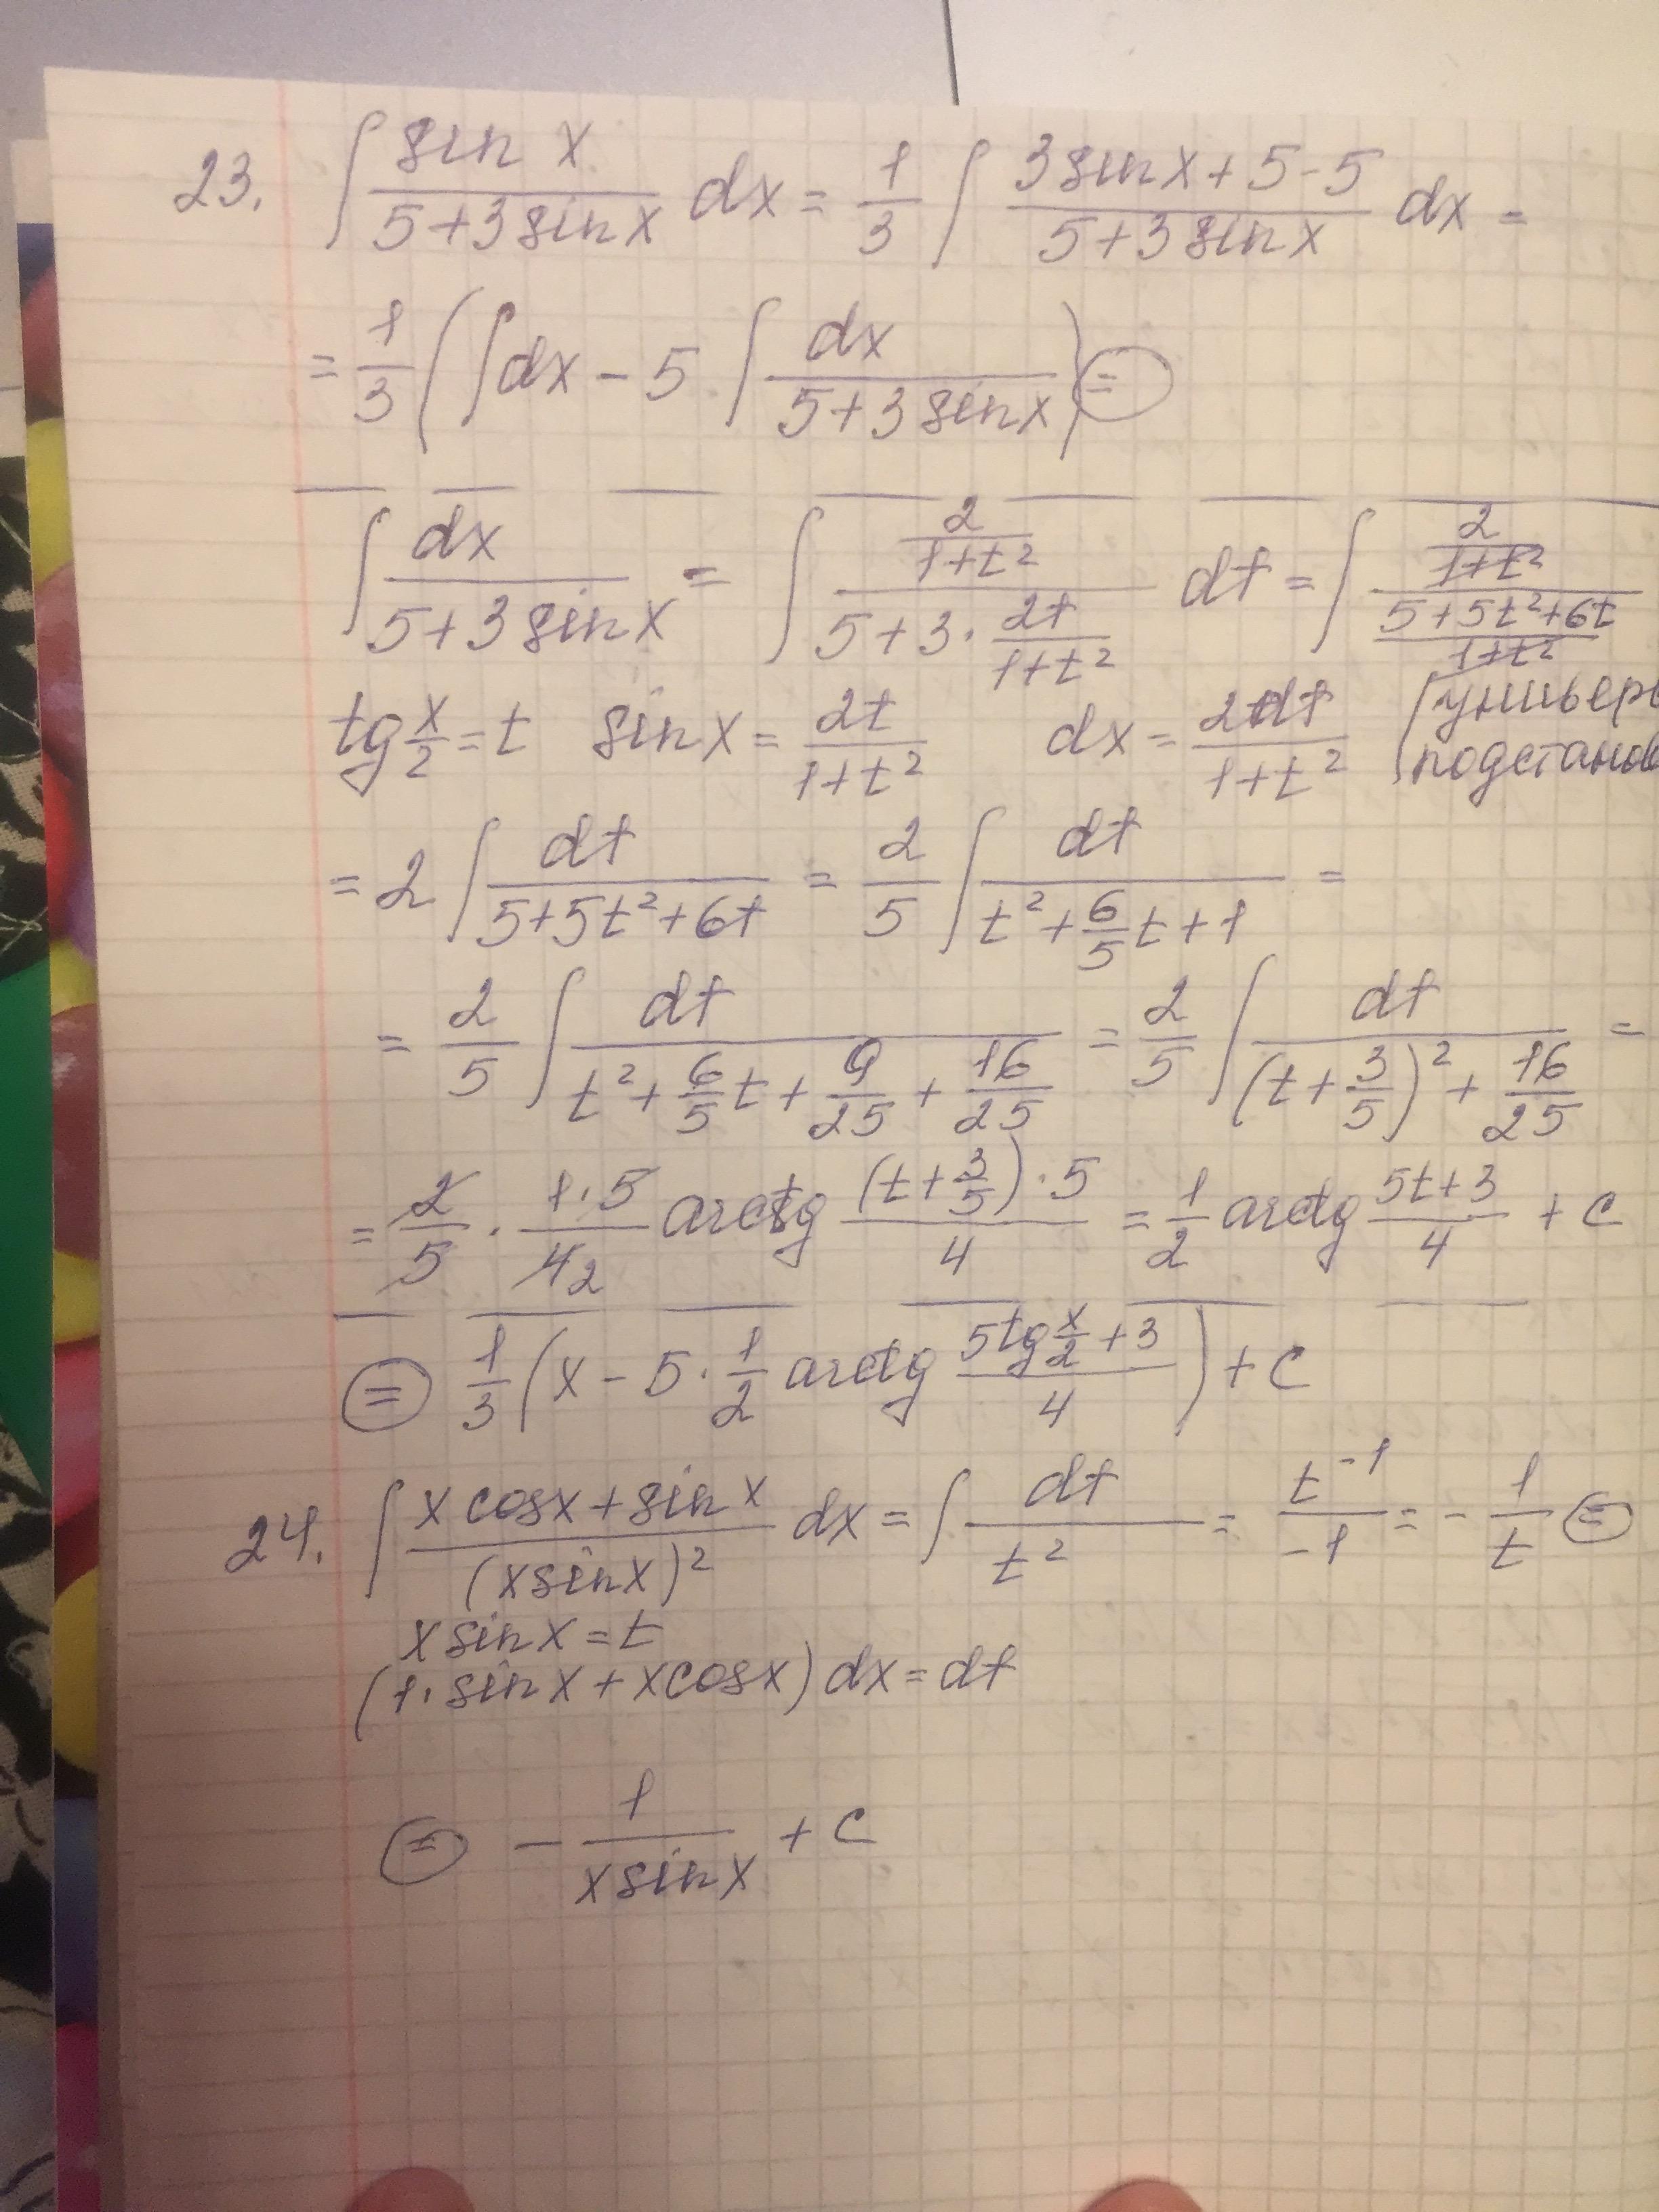 23. ∫ sin x / (5+3sin x) dx = 1/3 ∫ (3sin x + 5 - 5) / (5+3sin x) dx =
= 1/3 ( ∫dx - 5 · ∫ dx / (5+3sin x) ) =
∫ dx / (5+3sin x) = ∫ (2 / (1+t²)) / (5+3 · 2t / (1+t²)) dt = ∫ (2 / (1+t²)) / ((5+5t²+6t) / (1+t²))
tg x/2 = t   sin x = 2t / (1+t²)   dx = 2dt / (1+t²)
= 2 ∫ dt / (5+5t²+6t) = 2/5 ∫ dt / (t² + 6/5 t + 1) =
= 2/5 ∫ dt / (t² + 6/5 t + 9/25 + 16/25) = 2/5 ∫ dt / ((t + 3/5)² + 16/25) =
= 2/5 · 1·5 / 4 2 arctg (t + 3/5)·5 / 4 = 1/2 arctg (5t+3) / 4 + c
= 1/3 ( x - 5 · 1/2 arctg (5tg x/2 + 3) / 4 ) + c
24. ∫ (x cos x + sin x) / (x sin x)² dx = ∫ dt / t² = t⁻¹ / -1 = - 1/t =
x sin x = t
(1·sin x + x cos x) dx = dt
= - 1 / (x sin x) + c